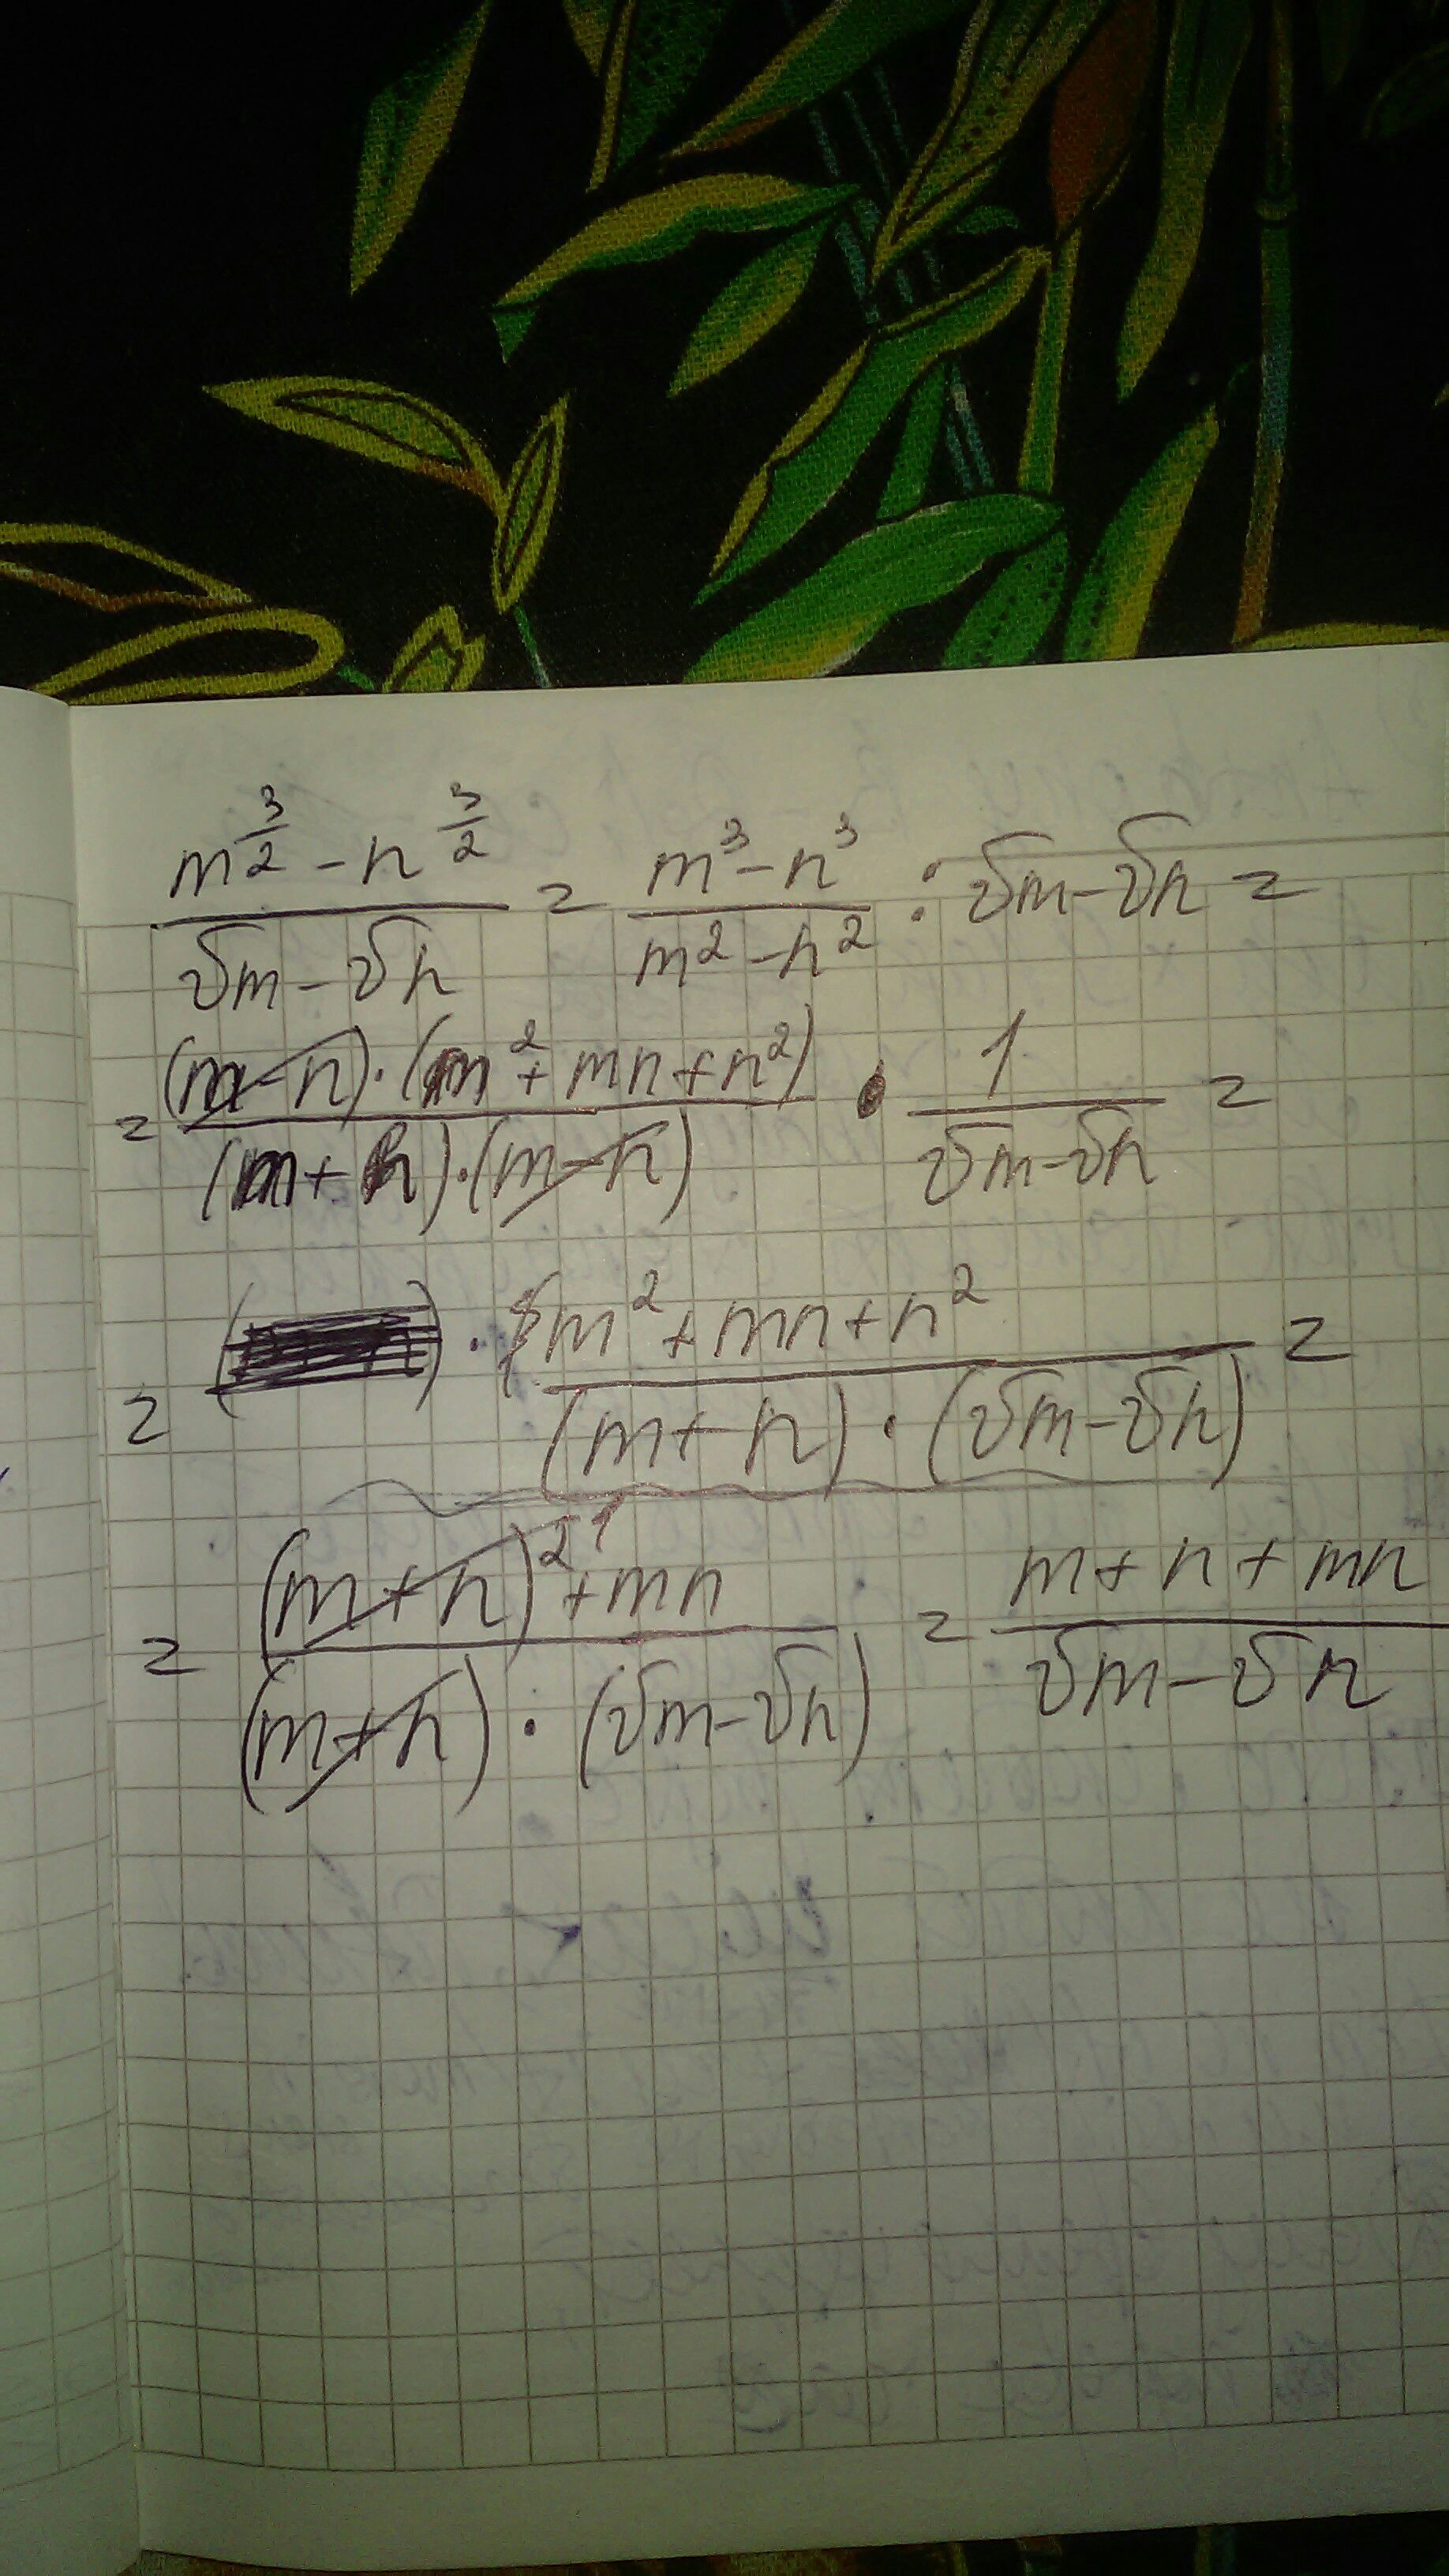 m^(3/2) - n^(3/2) / √m - √n = m³ - n³ / m² - n² : √m - √n =
= (m-n)·(m² + mn + n²) / (m+n)·(m-n) · 1 / √m - √n =
= m² + mn + n² / (m+n)·(√m - √n) =
= (m+n)²¹ + mn / (m+n)·(√m - √n) = m + n + mn / √m - √n